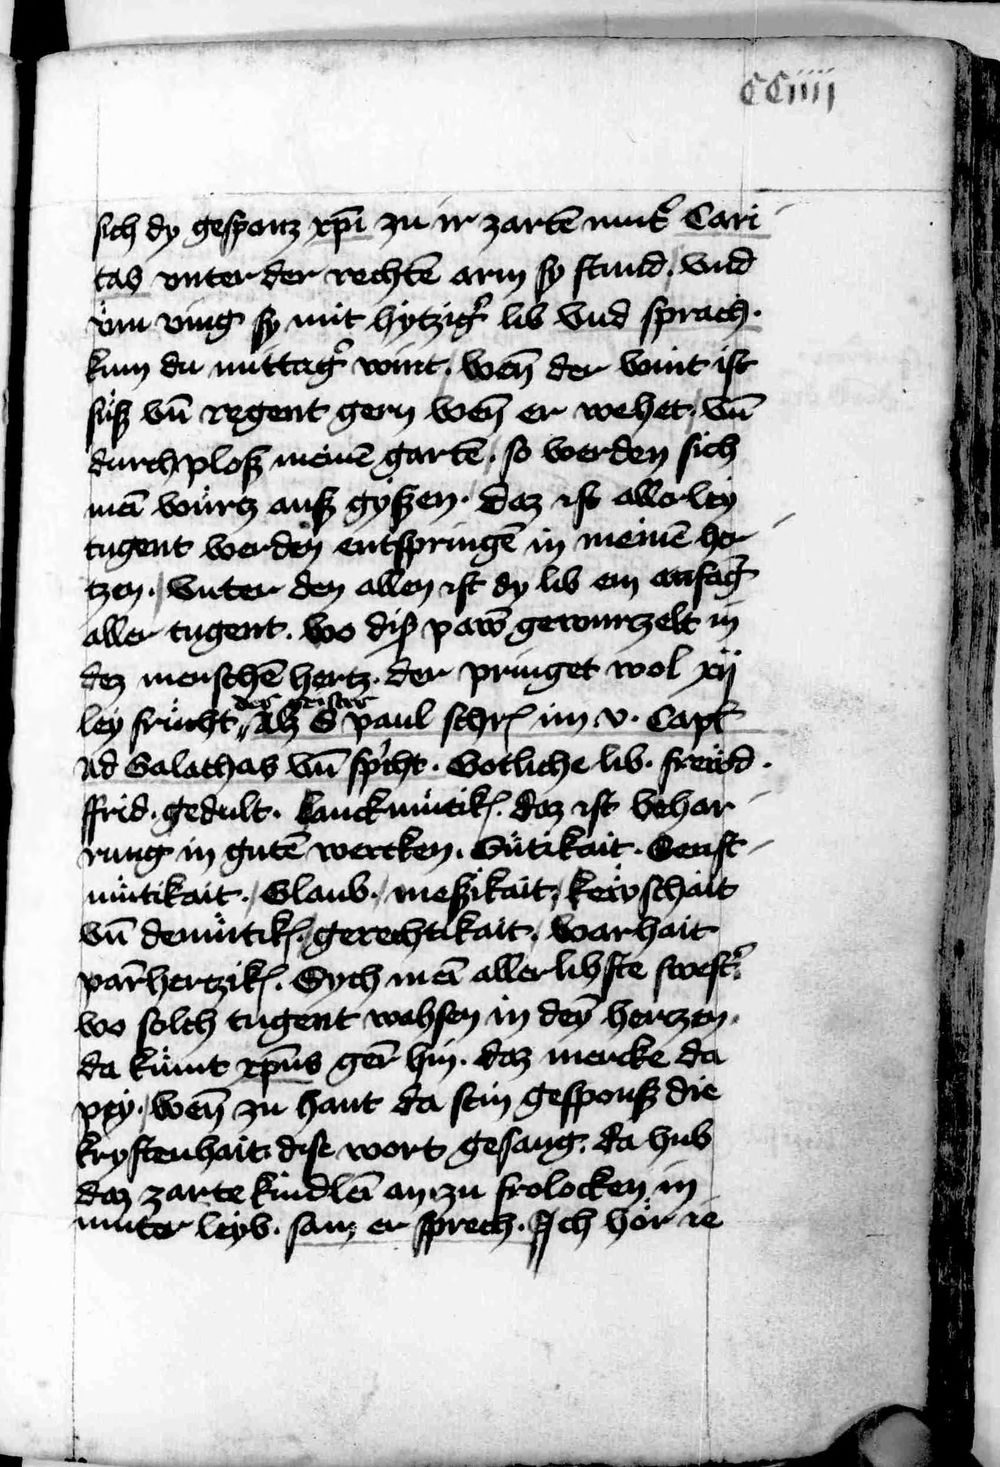 CCiiij
sich dy gesponz xp̄i zu ir zartē mut᷑ Cari
tas vnter der rechtē arm sy stund. vnd
vm ving sy mit hytzig᷑ lib vnd sprach.
kum du mittag᷑ wint. wen̄ der wint ist
süß vn̄ regent gern wen̄ er wehet. vn̄
durchploß meinē gartē. so werden sich
mei̅ würtz auß gyßen. daz ist allerley
tugent werden entspringē in meinē her
tzen. vnter den allen ist dy lib ein anfāg
aller tugent. wo diß paw̄ gewurzelt in
dez menschē hertz. der pringet wol xij
ley frücht des geistes Alz S paul schrꝭ im v. Capt᷑
ad Galathas vn̄ sp̓cht. Gotliche lib. frewd.
ffrid. gedult. Lanckmütikꝭ. daz ist behar
rung in gutē wercken. Gütikait. Senft
mütikait. Glaub. meßikait. kewschait
vn̄ demütikꝭ. gerechtikait. warhait
parm̄hertzikꝭ. Sych mei̅ allerlibste swest᷑.
wo solch tugent wahsen in dey̅ hertzen.
da kümt xp̄us ger̄ hin. daz mercke da
pey. wen̄ zu hant da sein gesponß die
krystenhait dise wort gesang. da hub
daz zarte kindlei̅ an zu frolocken in
muter leyb. sam er sprech. Ich hör ie